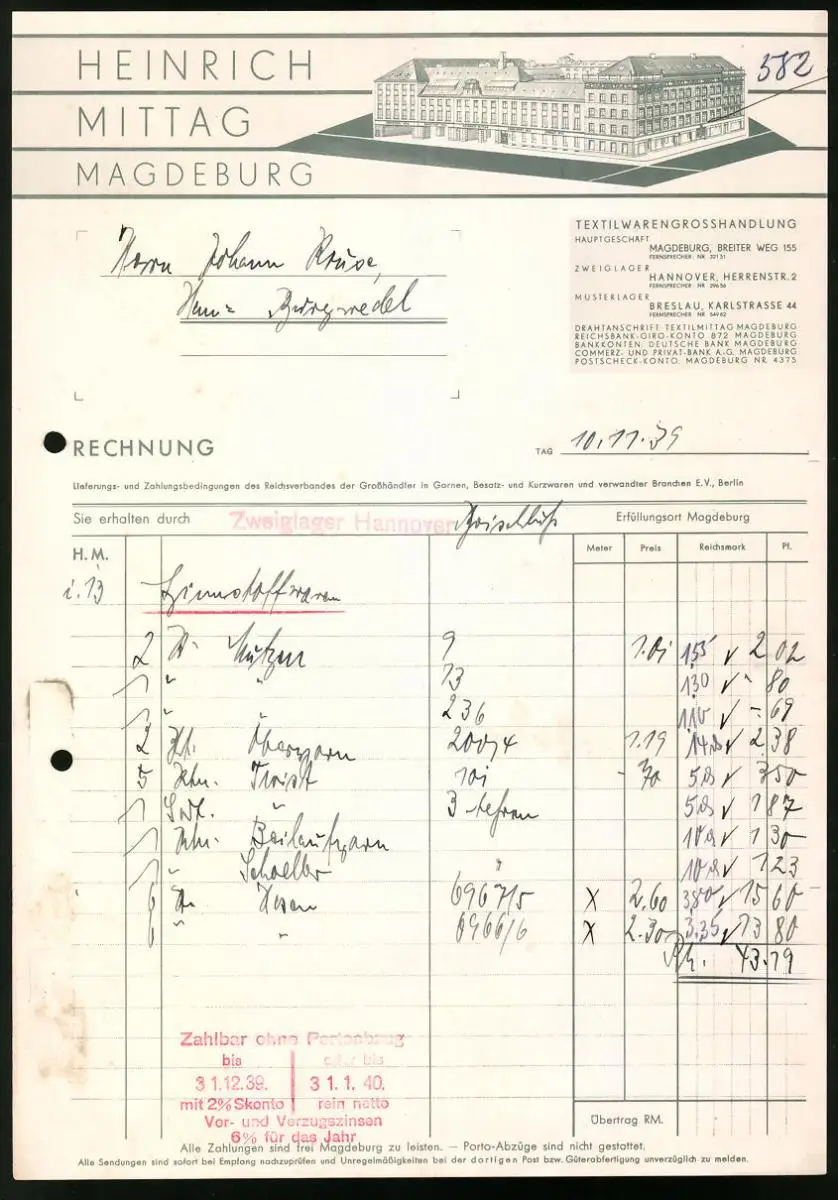 HEINRICH
MITTAG
MAGDEBURG
382
Herrn Johann Kruse,
Burgwedel
TEXTILWARENGROSSHANDLUNG
HAUPTGESCHÄFT
MAGDEBURG, BREITER WEG 155
FERNSPRECHER NR 321 51
ZWEIGLAGER
HANNOVER, HERRENSTR. 2
FERNSPRECHER NR 296 56
MUSTERLAGER
BRESLAU, KARLSTRASSE 44
FERNSPRECHER NR 549 62
DRAHTANSCHRIFT: TEXTILMITTAG MAGDEBURG
REICHSBANK-GIRO-KONTO 872 MAGDEBURG
BANKKONTEN: DEUTSCHE BANK MAGDEBURG
COMMERZ- UND PRIVAT-BANK A.-G. MAGDEBURG
POSTSCHECK-KONTO: MAGDEBURG NR. 4375
RECHNUNG
TAG 10.11.39
Lieferungs- und Zahlungsbedingungen des Reichsverbandes der Großhändler in Garnen, Besatz- und Kurzwaren und verwandter Branchen E.V., Berlin
Sie erhalten durch Zweiglager Hannover Erfüllungsort Magdeburg
H. M. Meter Preis Reichsmark Pf.
i. 13
2 Mützen 9 1.01 155 2 02
1 " " 13 130 - 80
1 " " 236 110 - 69
2 Obergarn 200/4 1.19 2 38
5 Twist - 70 3 50
1 " 3 1 87
1 Beilaufgarn 1 30
1 " Schoeller " 1 23
6 Hosen 6967/5 X 2.60 380 15 60
6 " " 6966/6 X 2.30 3.35 13 80
43.19
Zahlbar ohne Portoabzug
bis oder bis
31.12.39. 31.1.40.
mit 2% Skonto rein netto
Vor- und Verzugszinsen
6% für das Jahr
Übertrag RM.
Alle Zahlungen sind frei Magdeburg zu leisten. — Porto-Abzüge sind nicht gestattet.
Alle Sendungen sind sofort bei Empfang nachzuprüfen und Unregelmäßigkeiten bei der dortigen Post bzw. Güterabfertigung unverzüglich zu melden.